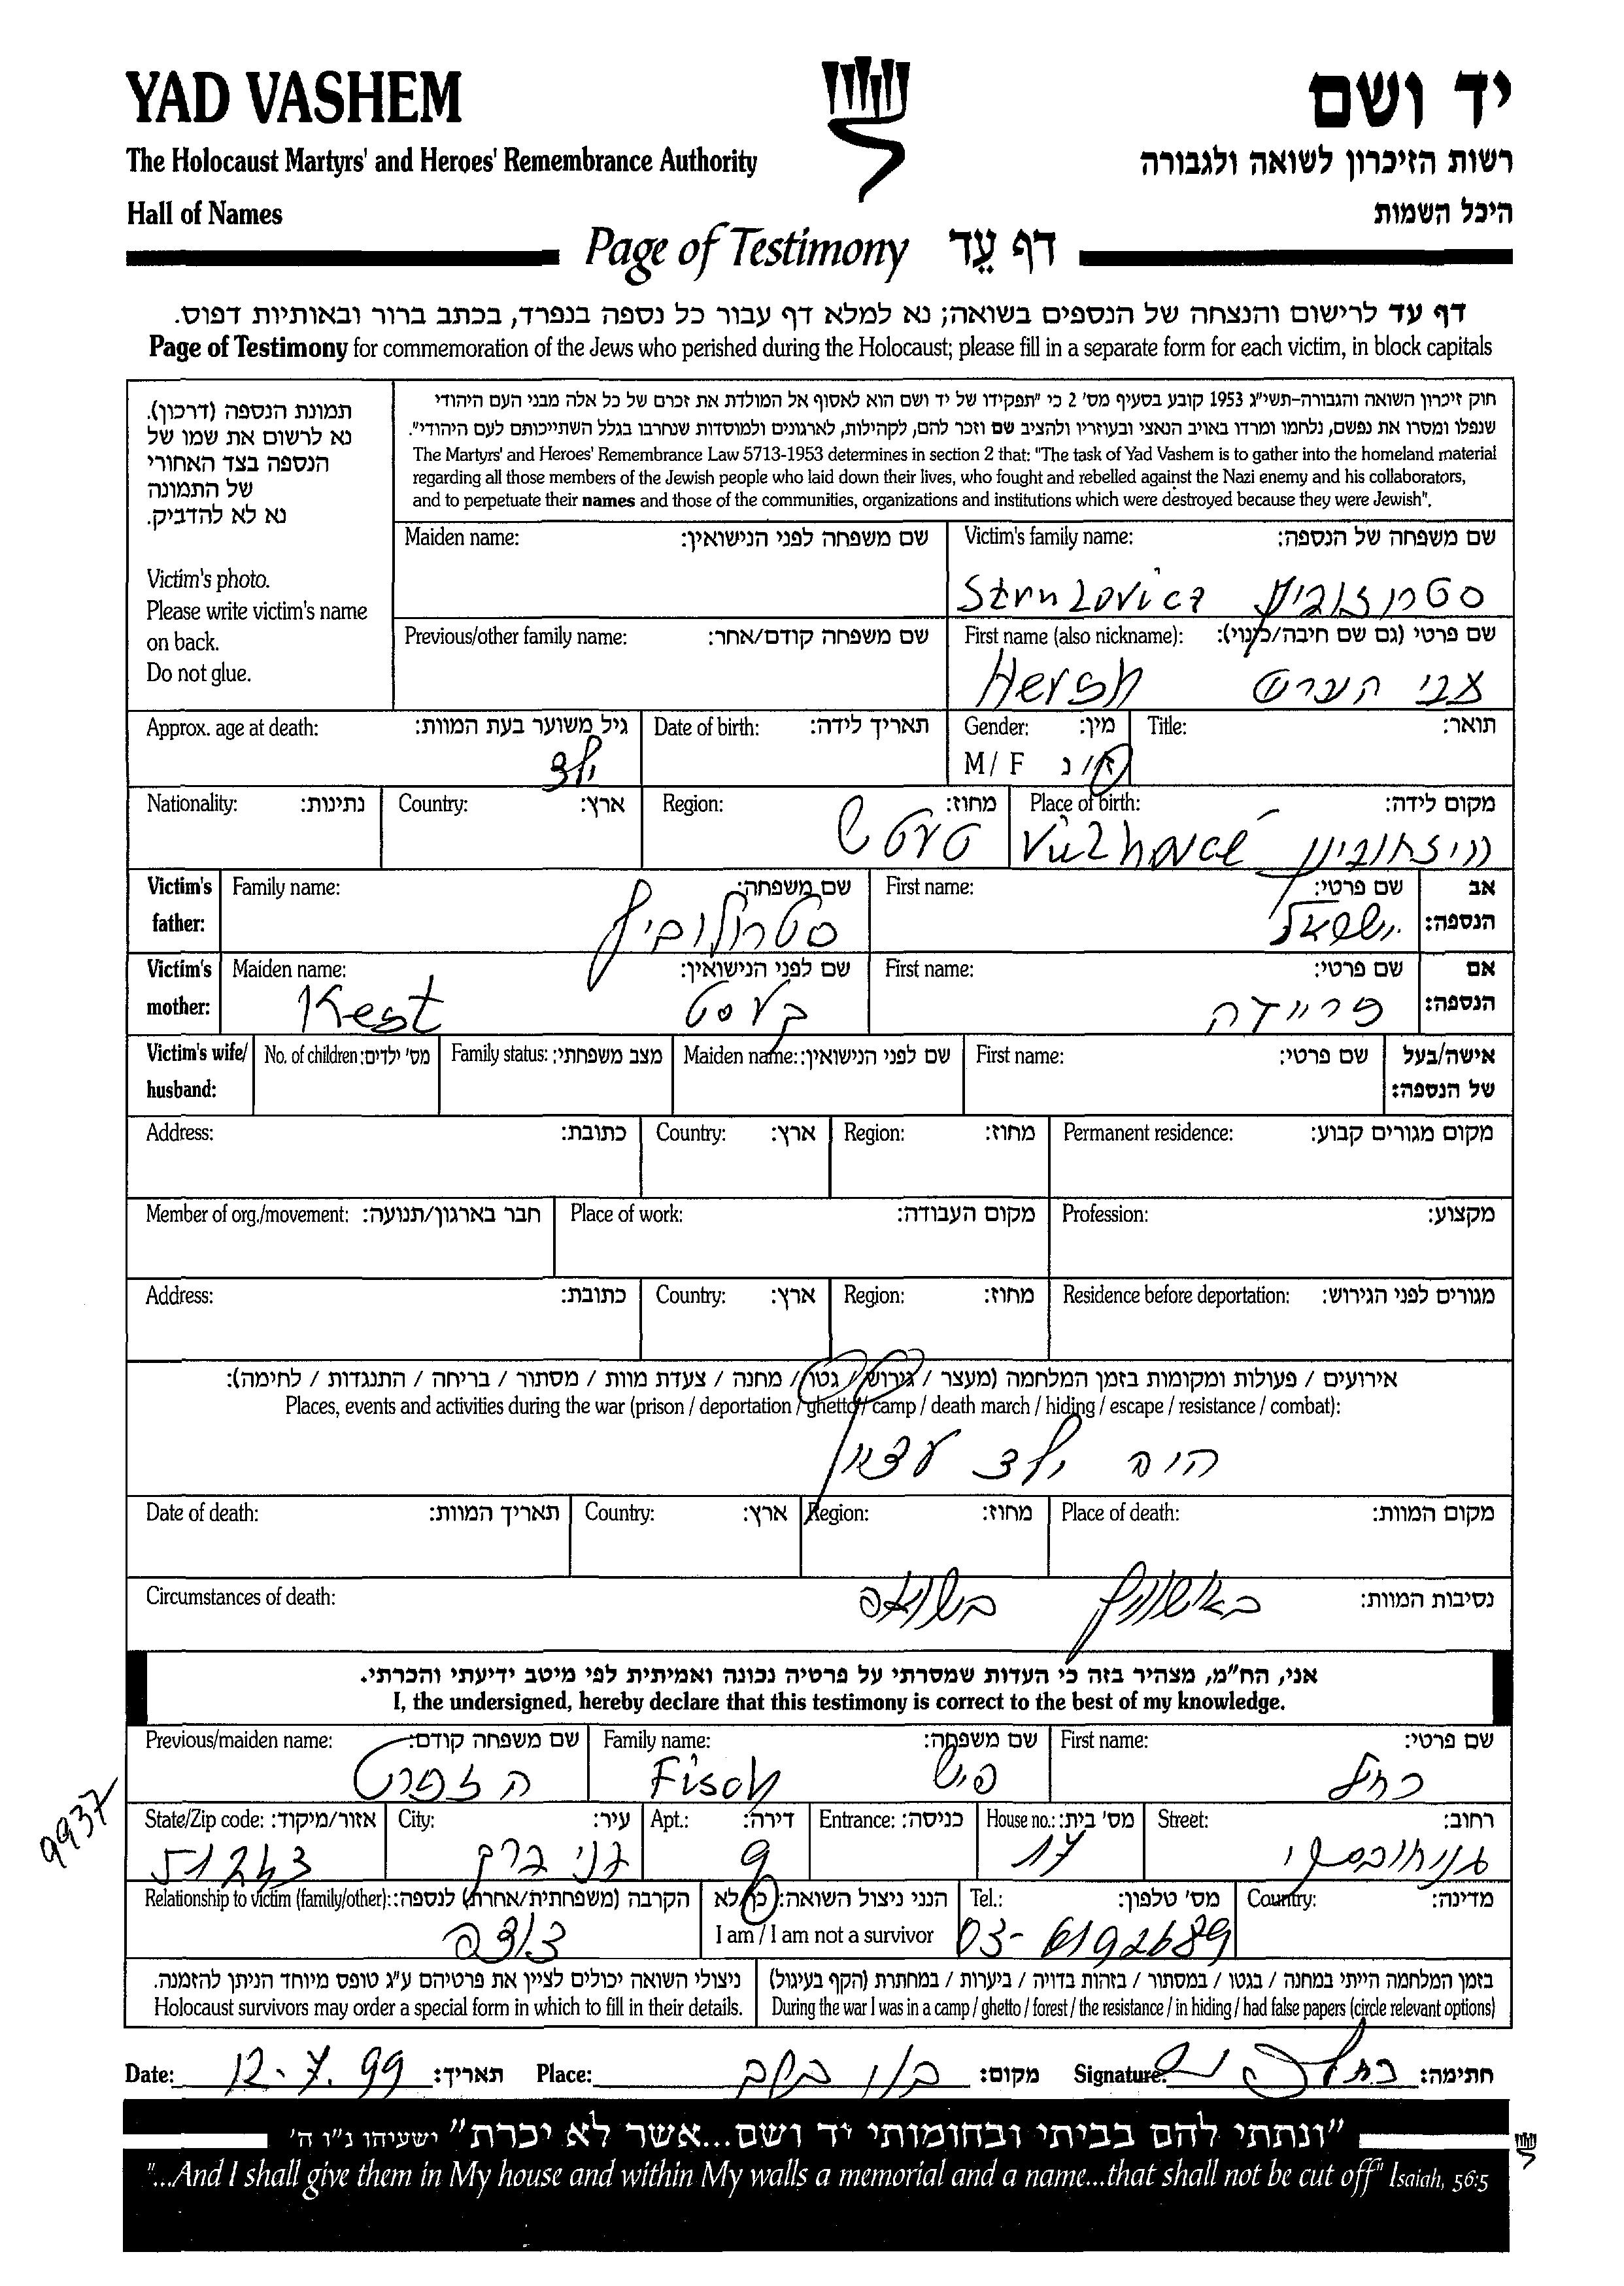 YAD VASHEM
יד ושם
The Holocaust Martyrs' and Heroes' Remembrance Authority
רשות הזיכרון לשואה ולגבורה
Hall of Names
היכל השמות
Page of Testimony דף עֵד
דף עד לרישום והנצחה של הנספים בשואה; נא למלא דף עבור כל נספה בנפרד, בכתב ברור ובאותיות דפוס.
Page of Testimony for commemoration of the Jews who perished during the Holocaust; please fill in a separate form for each victim, in block capitals
תמונת הנספה (דרכון).
נא לרשום את שמו של
הנספה בצד האחורי
של התמונה
נא לא להדביק.
Victim's photo.
Please write victim's name
on back.
Do not glue.
חוק זיכרון השואה והגבורה-תשי"ג 1953 קובע בסעיף מס' 2 כי "תפקידו של יד ושם הוא לאסוף אל המולדת את זכרם של כל אלה מבני העם היהודי
שנפלו ומסרו את נפשם, נלחמו ומרדו באויב הנאצי ובעוזריו ולהציב שם וזכר להם, לקהילות, לארגונים ולמוסדות שנחרבו בגלל השתייכותם לעם היהודי".
The Martyrs' and Heroes' Remembrance Law 5713-1953 determines in section 2 that: "The task of Yad Vashem is to gather into the homeland material
regarding all those members of the Jewish people who laid down their lives, who fought and rebelled against the Nazi enemy and his collaborators,
and to perpetuate their names and those of the communities, organizations and institutions which were destroyed because they were Jewish".
Maiden name: שם משפחה לפני הנישואין:
Victim's family name: שם משפחה של הנספה:
Previous/other family name: שם משפחה קודם/אחר:
First name (also nickname): שם פרטי (גם שם חיבה/כינוי):
Hersh צבי הערש
Approx. age at death: גיל משוער בעת המוות:
ילד
Date of birth: תאריך לידה:
Gender: מין:
M / F ז / נ
Title: תואר:
Nationality: נתינות:
Country: ארץ:
Region: מחוז:
Place of birth: מקום לידה:
Victim's father: אב הנספה:
Family name: שם משפחה:
First name: שם פרטי:
Victim's mother: אם הנספה:
Maiden name: שם לפני הנישואין:
Kest קעסט
First name: שם פרטי:
פריידה
Victim's wife/ husband: אישה/בעל של הנספה:
No. of children: מס' ילדים:
Family status: מצב משפחתי:
Maiden name: שם לפני הנישואין:
First name: שם פרטי:
Address: כתובת:
Country: ארץ:
Region: מחוז:
Permanent residence: מקום מגורים קבוע:
Member of org./movement: חבר בארגון/תנועה:
Place of work: מקום העבודה:
Profession: מקצוע:
Address: כתובת:
Country: ארץ:
Region: מחוז:
Residence before deportation: מגורים לפני הגירוש:
אירועים / פעולות ומקומות בזמן המלחמה (מעצר / גירוש / גטו / מחנה / צעדת מוות / מסתור / בריחה / התנגדות / לחימה):
Places, events and activities during the war (prison / deportation / ghetto / camp / death march / hiding / escape / resistance / combat):
היה ילד עדין
Date of death: תאריך המוות:
Country: ארץ:
Region: מחוז:
Place of death: מקום המוות:
Circumstances of death: נסיבות המוות:
באושוויץ בשואה
אני, הח"מ, מצהיר בזה כי העדות שמסרתי על פרטיה נכונה ואמיתית לפי מיטב ידיעתי והכרתי.
I, the undersigned, hereby declare that this testimony is correct to the best of my knowledge.
Previous/maiden name: שם משפחה קודם:
Family name: שם משפחה:
Fisch פיש
First name: שם פרטי:
רחל
9937
State/Zip code: אזור/מיקוד:
51243
City: עיר:
בני ברק
Apt.: דירה:
9
Entrance: כניסה:
House no.: מס' בית:
17
Street: רחוב:
Relationship to victim (family/other): הקרבה (משפחתית/אחרת) לנספה:
דודה
הנני ניצול השואה: כן/לא
I am / I am not a survivor
Tel.: מס' טלפון:
03-6192689
Country: מדינה:
ניצולי השואה יכולים לציין את פרטיהם ע"ג טופס מיוחד הניתן להזמנה.
Holocaust survivors may order a special form in which to fill in their details.
בזמן המלחמה הייתי במחנה / בגטו / במסתור / בזהות בדויה / ביערות / במחתרת (הקף בעיגול)
During the war I was in a camp / ghetto / forest / the resistance / in hiding / had false papers (circle relevant options)
Date: 12.7.99 תאריך:
Place: בני ברק מקום:
Signature: חתימה:
"ונתתי להם בביתי ובחומותי יד ושם...אשר לא יכרת" ישעיהו נ"ו ה'
"...And I shall give them in My house and within My walls a memorial and a name...that shall not be cut off" Isaiah, 56:5